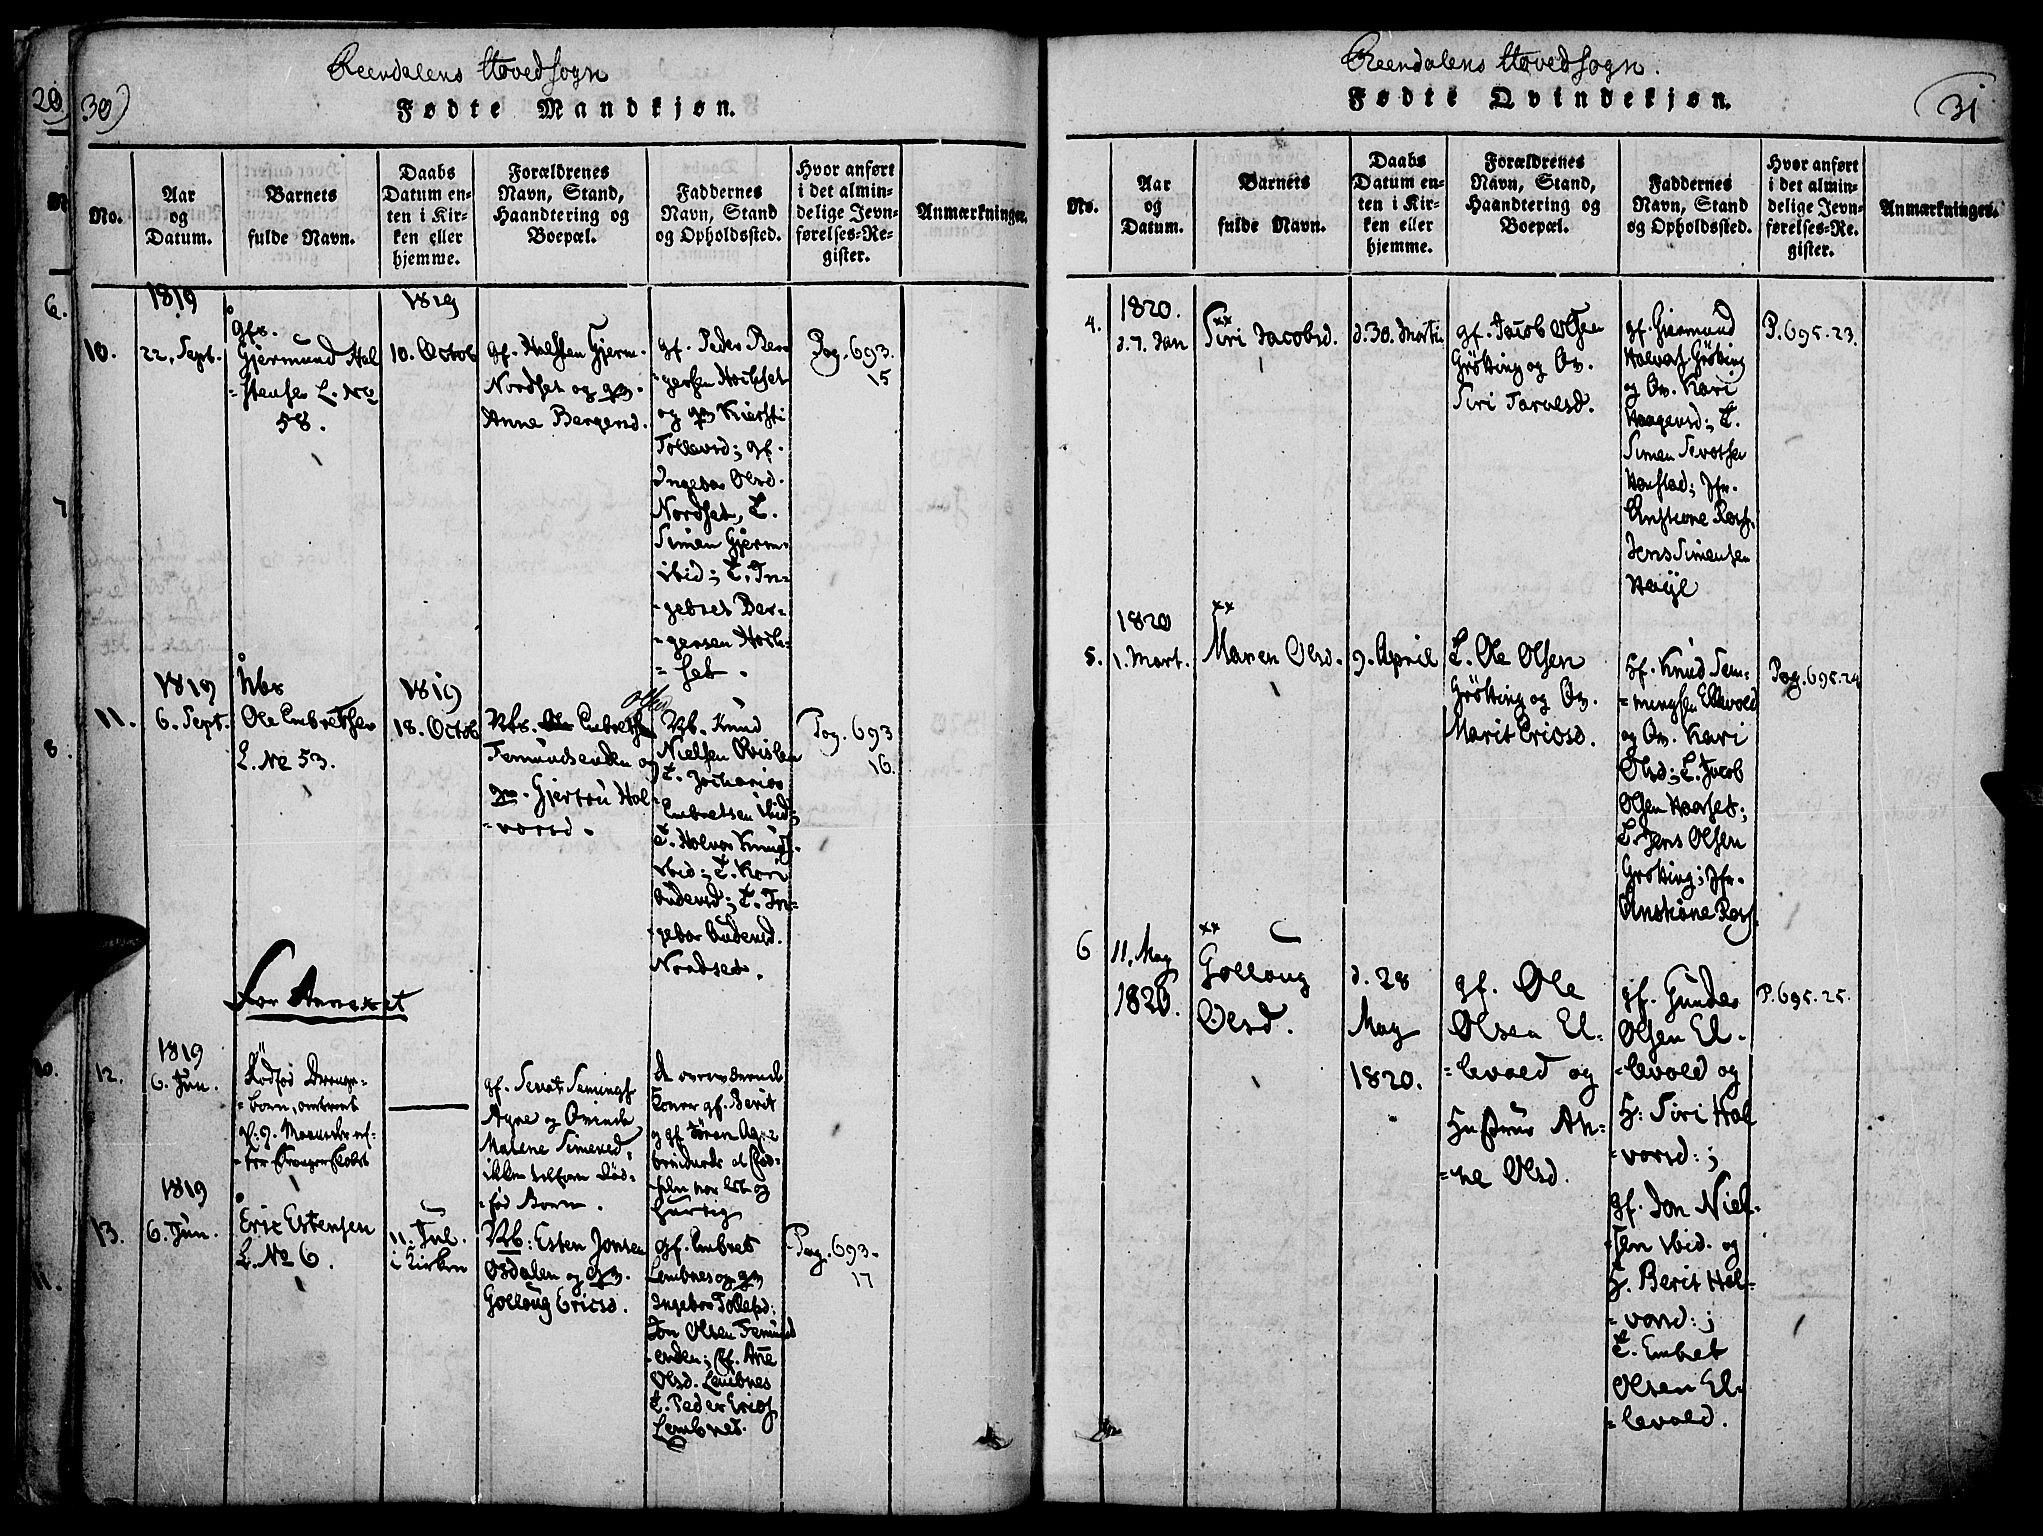 29)
30)
Reendalens Hovedsogn
Fødte Mandkjøn.
No.
Aar
og
Datum.
Barnets
fulde Navn.
Daabs
Datum en-
ten i Kir-
ken eller
hjemme.
Forældrenes
Navn, Stand,
Haandtering og
Boepæl.
Faddernes
Navn, Stand
og Opholdssted.
Hvor anført
i det almin-
delige Jevn-
førelses-Re-
gister.
Anmærkninger.
10.
1819
22. Sept.
gfr.
Gjermund Hal
=stensen L. No
58.
1819
10. Octob
gf. Halsten Gjerm.
Nordset og gm.
Anne Bergersd.
gf. Peder Ber
=gersen Hochset
og gm Kiersti
Tollevsd; gf.
Ingebor Olsd.
Nordset, L.
Simen Gjerm-
ibid; L. In-
=gebret Ber-
=gersen Hoch-
=set.
Pag. 693.
15
11.
1819
6. Sept.
Nbr
Ole Embretsen
L. No 53.
1819
18. Octob
Nbr. Embretsen
Femundsenden og
gm. Gjertru Hal
=vorsd.
Nb. Knud
Nielsen Qvislen
L. Zacharias
Embretsen ibid;
L. Halvor Knuds.
ibid; L. Kari
Audensd; L. In-
=gebor Audensd.
Nordset.
Pag. 693
16.
For Annexet
12.
1819
6. Jun.
Dødfød Drenge-
=barn, omtrent
gf. Sevat Semings
Agre og Qvinde
Malene Simensd.
ikke tilforn død-
=fød Barn.
De overværende
Koner gf. Berit
og gf. Jøran
13.
1819
6. Jun.
Eric Estensen
L. No 6.
11. Jul.
i Kirken
Nb: Esten Jonsen
Øsdalen og gm.
Gollaug Ericsd.
gf. Embret
Lembnes og gm
Ingebor Tollefsd;
Jon Olsen Femund
=enden; gf. Ane
Olsd. Lembnes
L. Peder Erics
Lembnes.
Pag. 693.
17
Reendalens Hovedsogn.
Fødte Qvindekjøn.
31
No.
Aar
og
Datum.
Barnets
fulde Navn.
Daabs
Datum en-
ten i Kir-
ken eller
hjemme.
Forældrenes
Navn, Stand,
Haandtering og
Boepæl.
Faddernes
Navn, Stand
og Opholdssted.
Hvor anført
i det almin-
delige Jevn-
førelses-Re-
gister.
Anmærkninger.
4.
1820.
d. 7. Jan
Siri Jacobsd.
d. 30. Marti
gf. Jacob Olsen
Grötting og Qv.
Siri Tarvesd.
gf. Giermund
Halvors Grötting
og Qv. Kari
Haagensd; L.
Simen Sevatsen
Hanstad; Jfr.
Jens Simensen
P. 695. 23.
5.
1820
1. Mart.
Maren Olsd.
9. April
L. Ole Olsen
Grötting og Qv.
Marit Ericsd.
gf. Knud Sem-
=mingsen Ellevold
og Qv. Kari
Olsd; L. Jacob
Olsen Haarset;
L. Jens Olsen
Grötting; Jfr.
Pag. 695. 24
6
11. May
1820.
Gollaug
Olsd.
d. 28
May
1820.
gf. Ole
Olsen El-
=levold og
Hustrue An-
=ne Olsd.
gf. Gunder
Olsen El-
=levold og
H: Siri Hal
=vorsd:;
gf. Jon Niel-
=sen ibid. og
H. Berit Hal-
=vorsd:;
L. Embret
Olsen El-
=levold.
P. 695. 25.